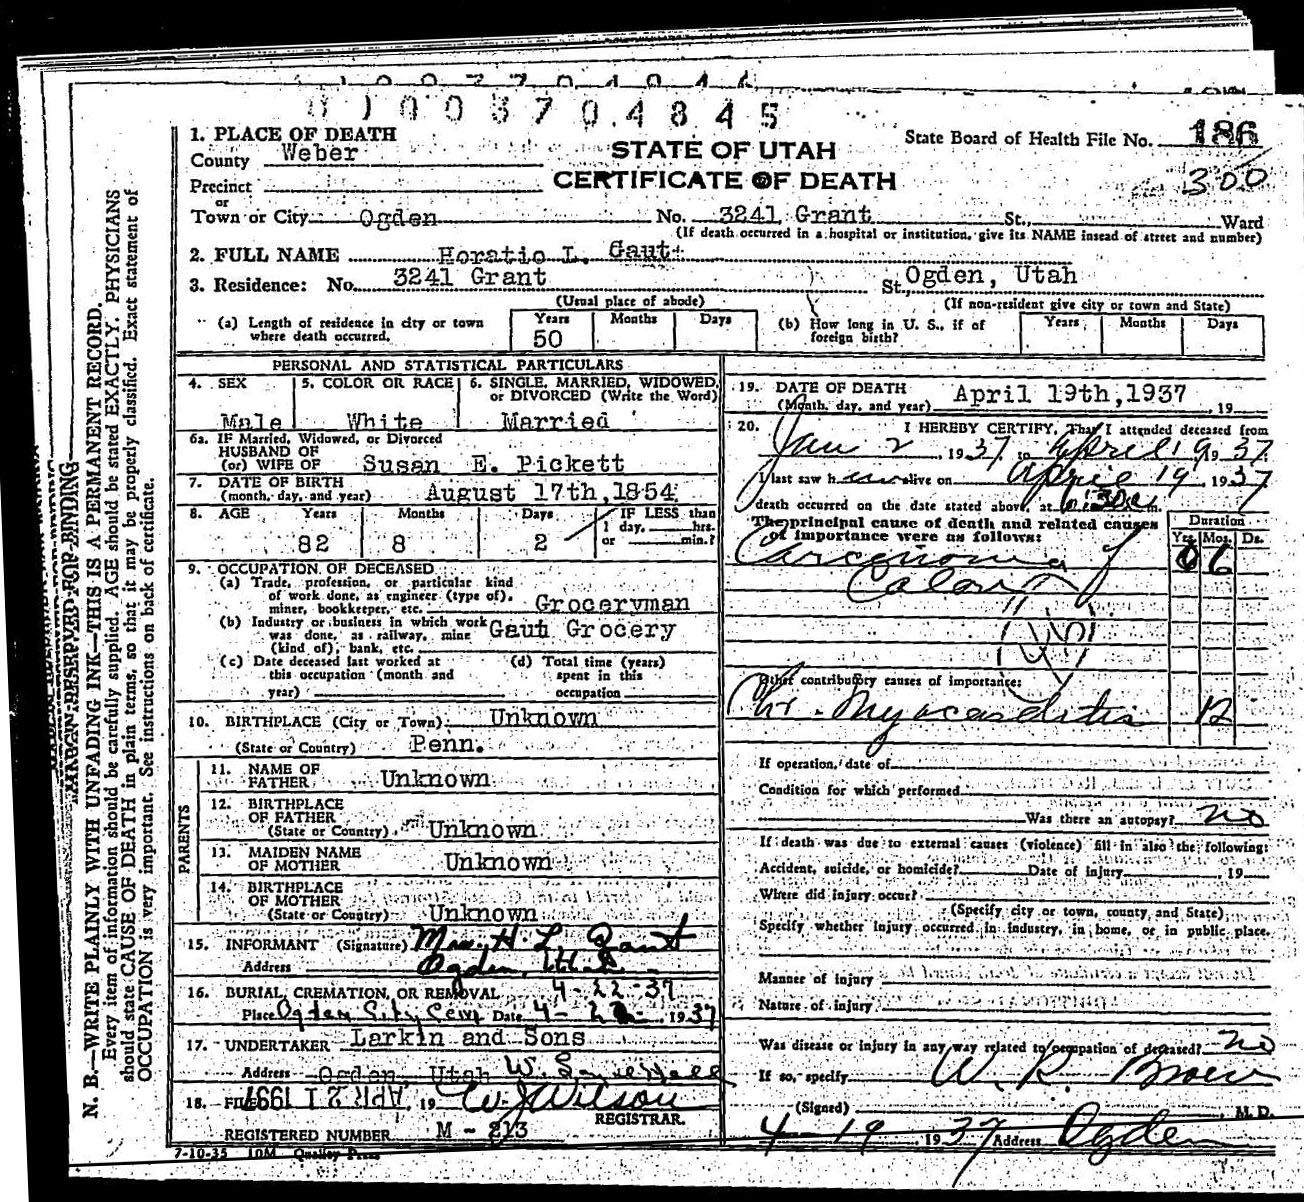 0100370.4845
1. PLACE OF DEATH
County Weber
STATE OF UTAH
State Board of Health File No. 186
CERTIFICATE OF DEATH
300
Precinct
or
Town or City Ogden No. 3241 Grant St., Ward
(If death occurred in a hospital or institution, give its NAME insead of street and number)
2. FULL NAME Horatio L. Gaut
3. Residence: No. 3241 Grant St. Ogden, Utah
(Usual place of abode) (If non-resident give city or town and State)
(a) Length of residence in city or town where death occurred. Years 50 Months Days
(b) How long in U. S., if of foreign birth? Years Months Days
PERSONAL AND STATISTICAL PARTICULARS
4. SEX Male
5. COLOR OR RACE White
6. SINGLE, MARRIED, WIDOWED, or DIVORCED (Write the Word) Married
6a. IF Married, Widowed, or Divorced
HUSBAND OF
(or) WIFE OF Susan E. Pickett
7. DATE OF BIRTH
(month, day, and year) August 17th, 1854
8. AGE Years 82 Months 8 Days 2 IF LESS than 1 day, hrs. or min.?
9. OCCUPATION OF DECEASED
(a) Trade, profession, or particular kind
of work done, as engineer (type of),
miner, bookkeeper, etc. Groceryman
(b) Industry or business in which work
was done, as railway, mine
(kind of), bank, etc. Gaut Grocery
(c) Date deceased last worked at
this occupation (month and
year)
(d) Total time (years)
spent in this
occupation
10. BIRTHPLACE (City or Town) Unknown
(State or Country) Penn.
PARENTS
11. NAME OF
FATHER Unknown
12. BIRTHPLACE
OF FATHER
(State or Country) Unknown
13. MAIDEN NAME
OF MOTHER Unknown
14. BIRTHPLACE
OF MOTHER
(State or Country) Unknown
15. INFORMANT (Signature) Mrs. H. L. Gaut
Address Ogden, Utah
16. BURIAL, CREMATION, OR REMOVAL 4-22-37
Place Ogden City Cem Date 4-22- 1937
17. UNDERTAKER Larkin and Sons
Address Ogden, Utah
18. FILED APR 21 1937 19 W J Wilson
REGISTRAR.
REGISTERED NUMBER M - 213
7-10-35 10M Quality Press
19. DATE OF DEATH
(Month, day, and year) April 19th, 1937 , 19
20. I HEREBY CERTIFY, That I attended deceased from
Jan 2, 1937 to April 19 1937
I last saw h alive on April 19, 1937
death occurred on the date stated above, at m.
The principal cause of death and related causes
of importance were as follows:
Duration
Yrs. Mos. Ds.
Carcinoma of 0 6
Colon
Other contributory causes of importance:
Chr. Myocarditis 12
If operation, date of
Condition for which performed
Was there an autopsy? no
If death was due to external causes (violence) fill in also the following:
Accident, suicide, or homicide? Date of injury , 19
Where did injury occur?
(Specify city or town, county, and State)
Specify whether injury occurred in industry, in home, or in public place.
Manner of injury
Nature of injury
Was disease or injury in any way related to occupation of deceased? no
If so, specify
(Signed) W. R. Brown M. D.
4-19, 1937 Address Ogden
MARGIN RESERVED FOR BINDING
N. B.—WRITE PLAINLY WITH UNFADING INK—THIS IS A PERMANENT RECORD.
Every item of information should be carefully supplied. AGE should be stated EXACTLY. PHYSICIANS
should state CAUSE OF DEATH in plain terms, so that it may be properly classified. Exact statement of
OCCUPATION is very important. See instructions on back of certificate.